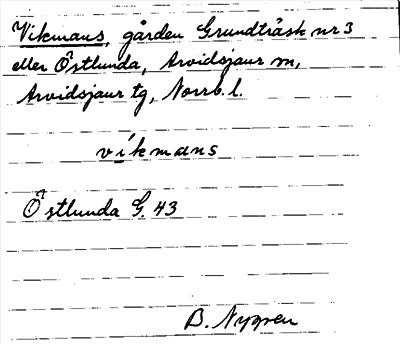 Vikmans, gården Grundträsk nr 3
eller Östlunda, Arvidsjaur sn,
Arvidsjaur tg, Norrb. l.
víkmans
Östlunda G. 43
B. Nygren